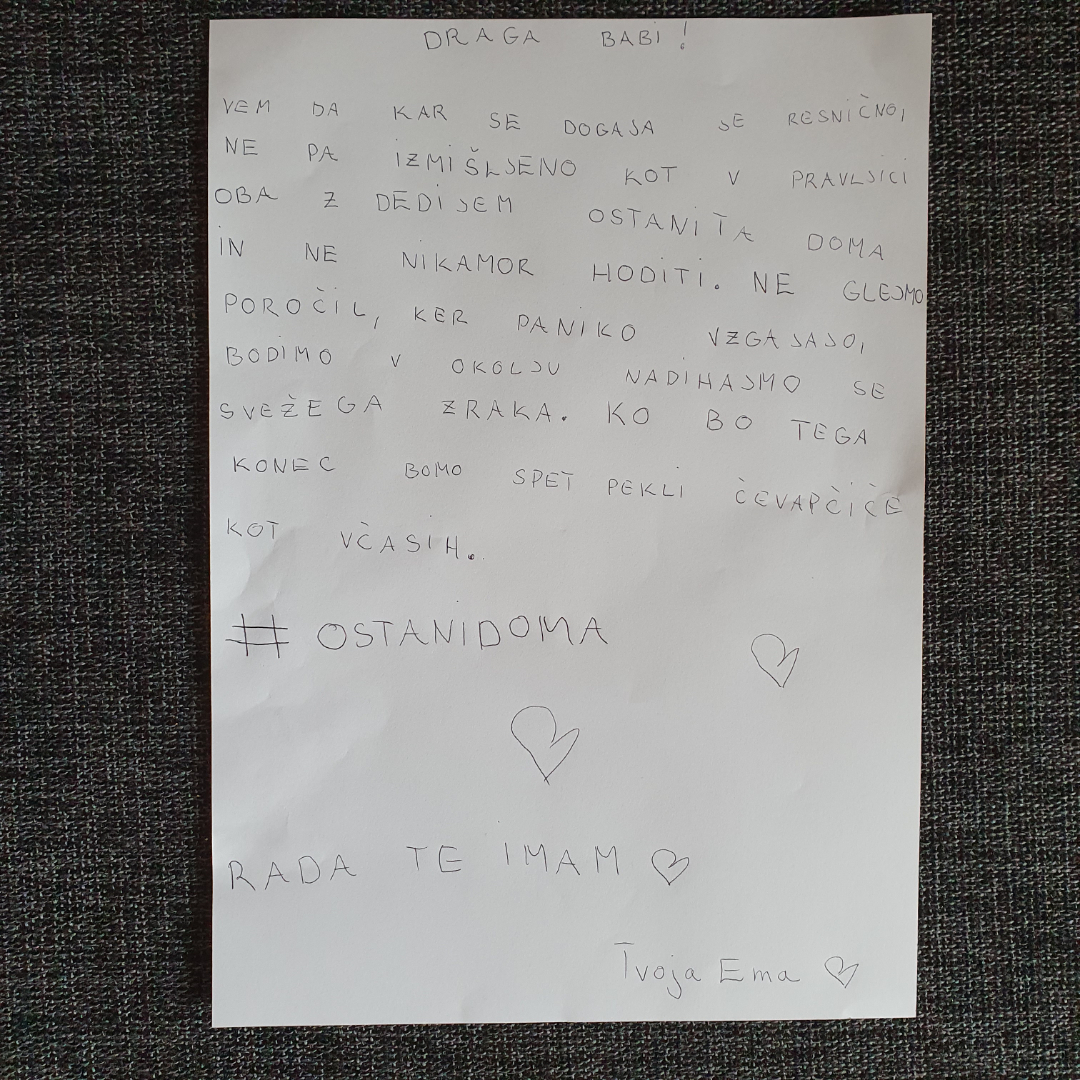 DRAGA BABI!
VEM DA KAR SE DOGAJA JE RESNIČNO,
NE PA IZMIŠLJENO KOT V PRAVLJICI
OBA Z DEDIJEM OSTANITA DOMA
IN NE NIKAMOR HODITI. NE GLEJMO
POROČIL, KER PANIKO VZGAJAJO,
BODIMO V OKOLJU NADIHAJMO SE
SVEŽEGA ZRAKA. KO BO TEGA
KONEC BOMO SPET PEKLI ČEVAPČIČE
KOT VČASIH.
#OSTANIDOMA
RADA TE IMAM
Tvoja Ema